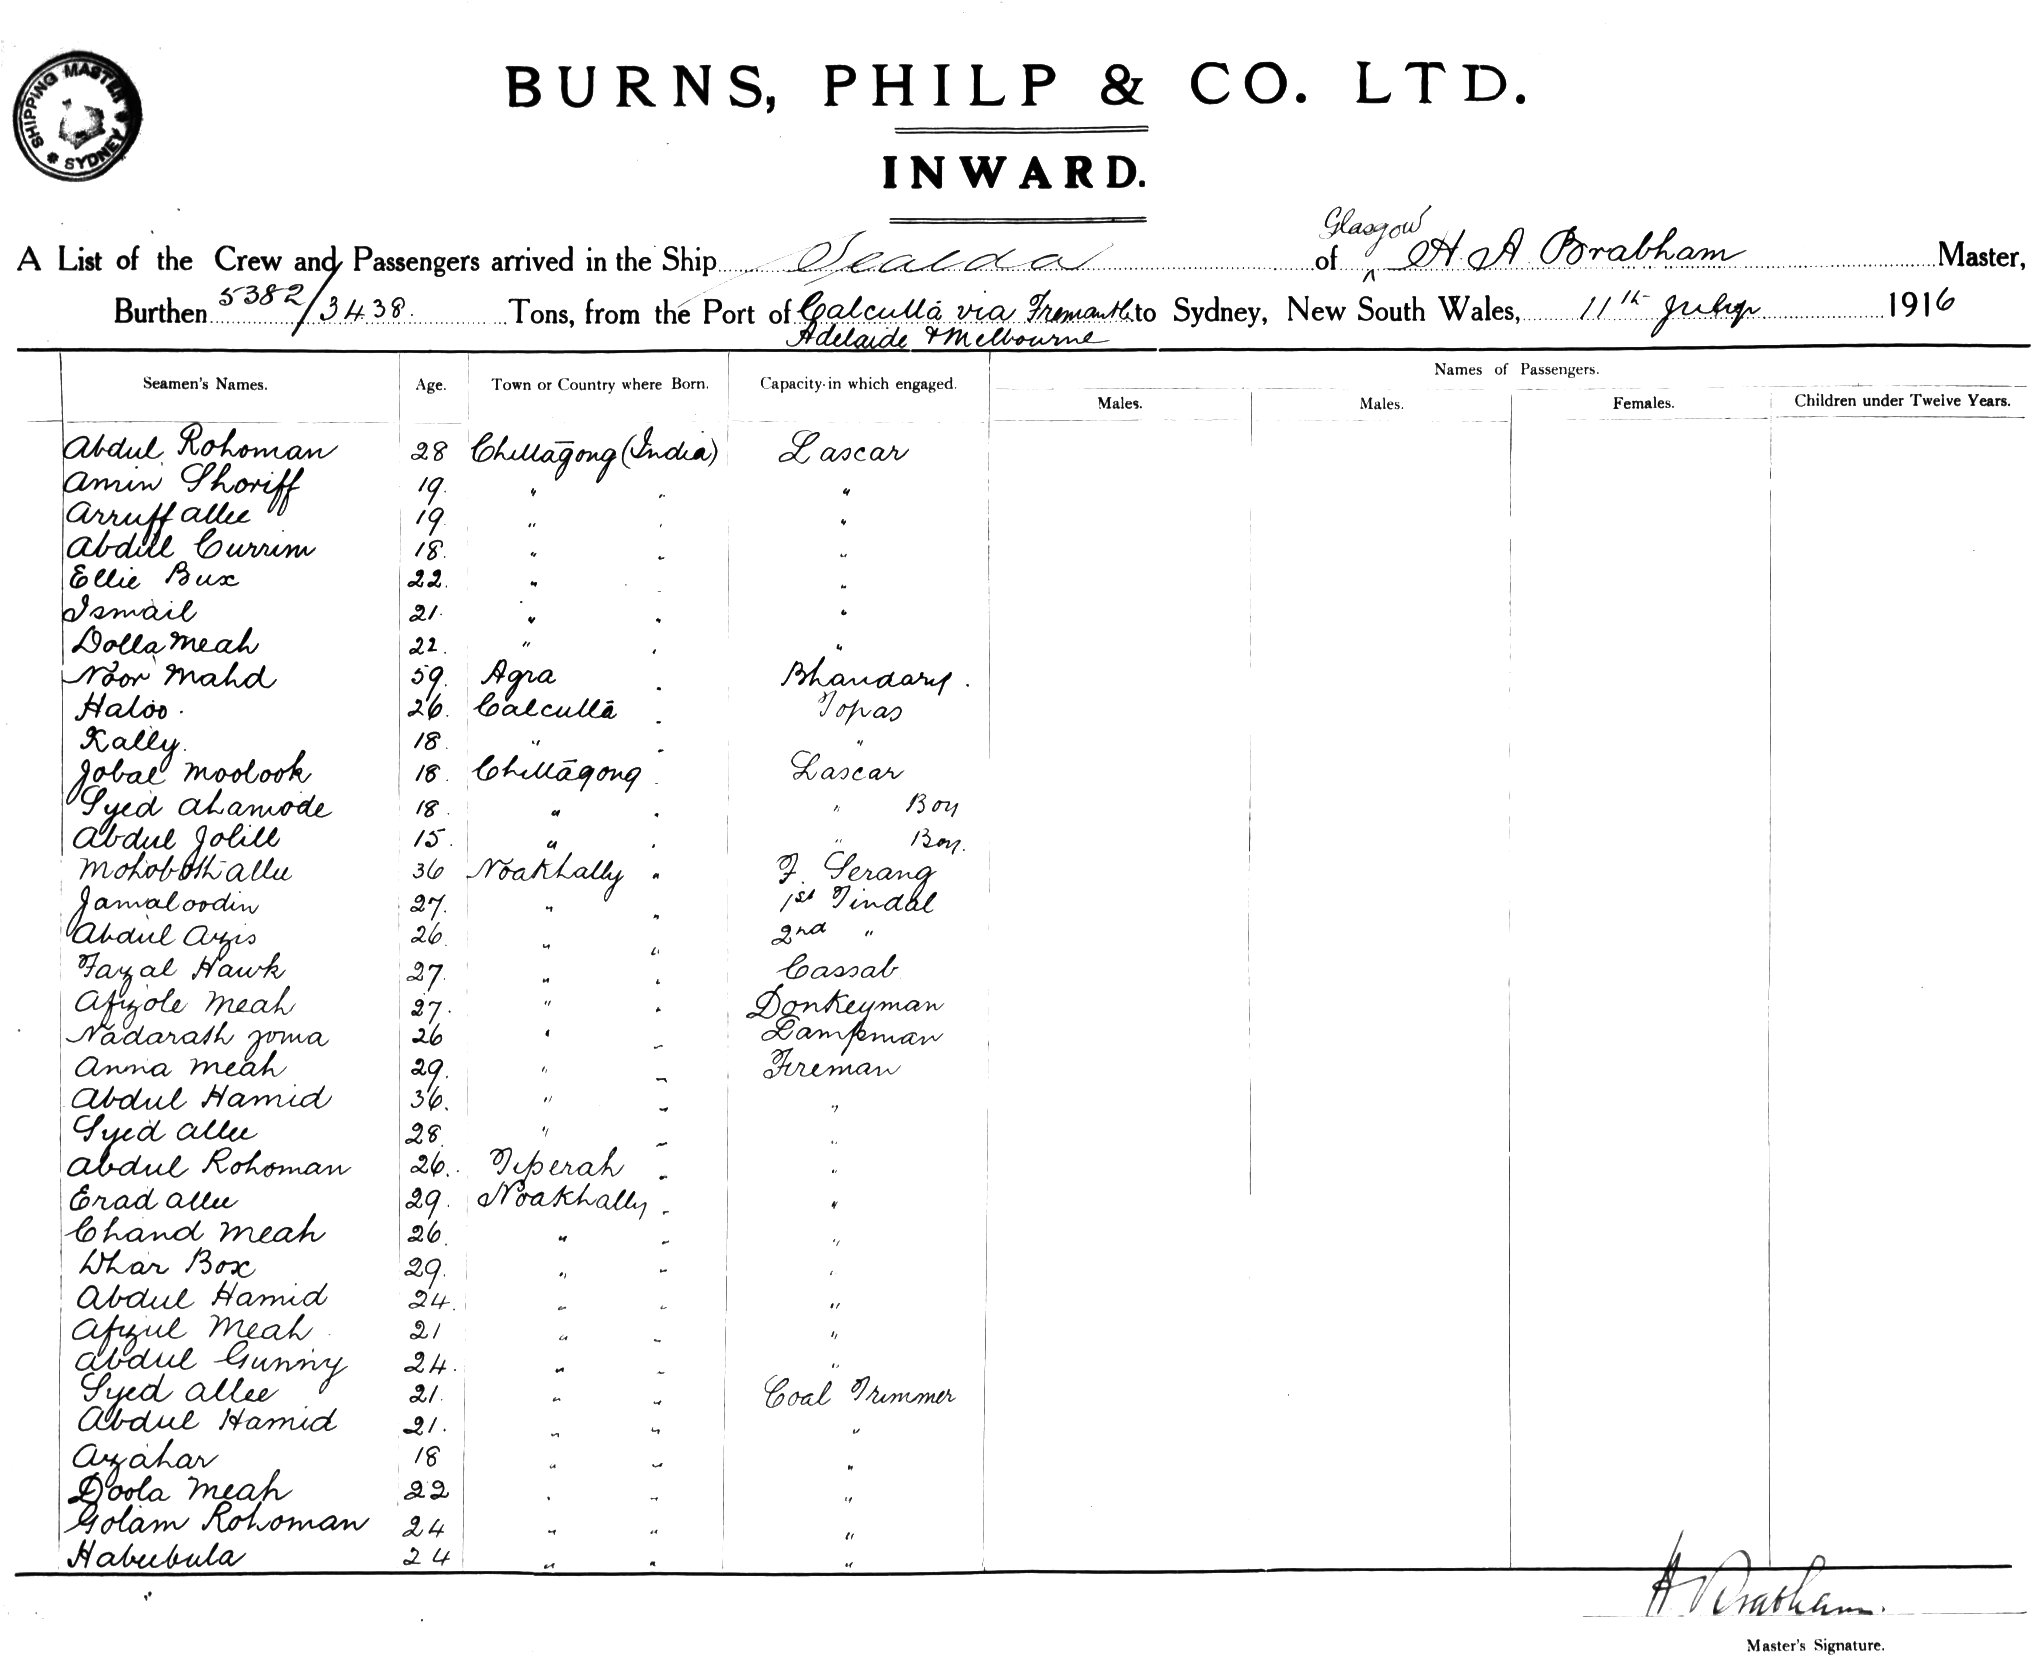 SHIPPING MASTER SYDNEY
BURNS, PHILP & CO. LTD.
INWARD.
Glasgow
A List of the Crew and Passengers arrived in the Ship Sealda of H. A Brabham Master,
Burthen 5382/3438. Tons, from the Port of Calcutta via Fremantle to Sydney, New South Wales, 11th July 1916
Adelaide & Melbourne
Names of Passengers.
Seamen's Names. Age. Town or Country where Born. Capacity in which engaged.
Males. Males. Females. Children under Twelve Years.
Abdul Rohoman 28 Chittagong (India) Lascar
Amin Shoriff 19. " " "
Arruff allee 19 " " "
Abdul Currim 18. " " "
Ellie Bux 22. " " "
Ismail 21. " " "
Dolla Meah 22. " " "
Noor Mahd 59. Agra " Bhandary.
Haloo. 26. Calcutta " Topas
Kally. 18. " " "
Jobal Moolook 18. Chittagong " Lascar
Syed ahamode 18. " " " Boy
Abdul Jolill 15. " " " Boy.
Mohoboth allee 36 Noakhally " F. Serang
Jamaloodin 27. " " 1st Tindal
Abdul Azis 26. " " 2nd "
Fazal Hawk 27. " " Cassab
Afizole Meah 27. " " Donkeyman
Nadarath zoma 26 " " Lampman
Anna Meah 29. " " Fireman
Abdul Hamid 36. " " "
Syed allee 28. " " "
Abdul Rohoman 26. Tiperah " "
Erad allee 29. Noakhally " "
Chand Meah 26. " " "
Dhar Box 29. " " "
Abdul Hamid 24. " " "
Afizul Meah 21 " " "
abdul Gunny 24. " " "
Syed allee 21. " " Coal Trimmer
Abdul Hamid 21. " " "
Azahar 18 " " "
Doola Meah 22 " " "
Golam Rohoman 24 " " "
Habeebula 24 " " "
H Brabham.
Master's Signature.